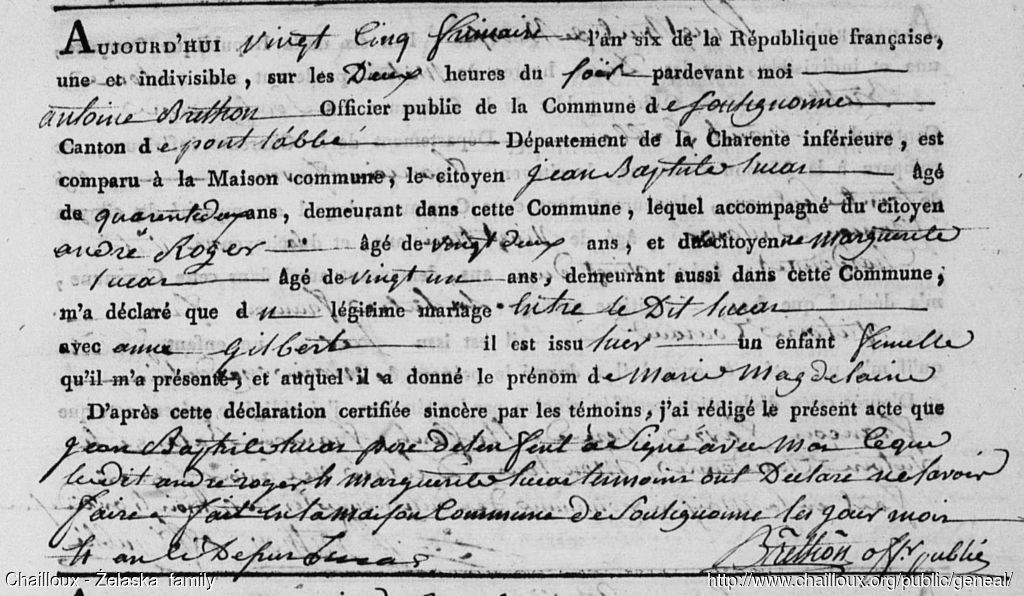 AUJOURD'HUI vingt Cinq frimaire l'an six de la République française,
une et indivisible, sur les Deux heures du soir pardevant moi
antoine Brethon Officier public de la Commune de Soulignonne
Canton de pont l'abbé Département de la Charente inférieure, est
comparu à la Maison commune, le citoyen jean Baptiste lucas âgé
de quarentedeux ans, demeurant dans cette Commune, lequel accompagné du citoyen
andré Roger âgé de vingt deux ans, et de la citoyenne Marguerite
lucas âgé de vingt un ans, demeurant aussi dans cette Commune,
m'a déclaré que du légitime mariage Entre le Dit lucas
avec anne Gilbert il est issu hier un enfant fimelle
qu'il m'a présenté, et auquel il a donné le prénom de Marie Magdelaine
D'après cette déclaration certifiée sincère par les témoins, j'ai rédigé le présent acte que
jean Baptiste lucas pere de lenfent a Signé avec Moi Ce que
ledit andré roger et Marguerite lucas temoins ont Declaré ne savoir
faire fait en la maison Commune de Soulignonne les jour mois
et an Ci Desus Lucas Bréthon offr public
Chailloux - Żelaska family http://www.chailloux.org/public/geneal/